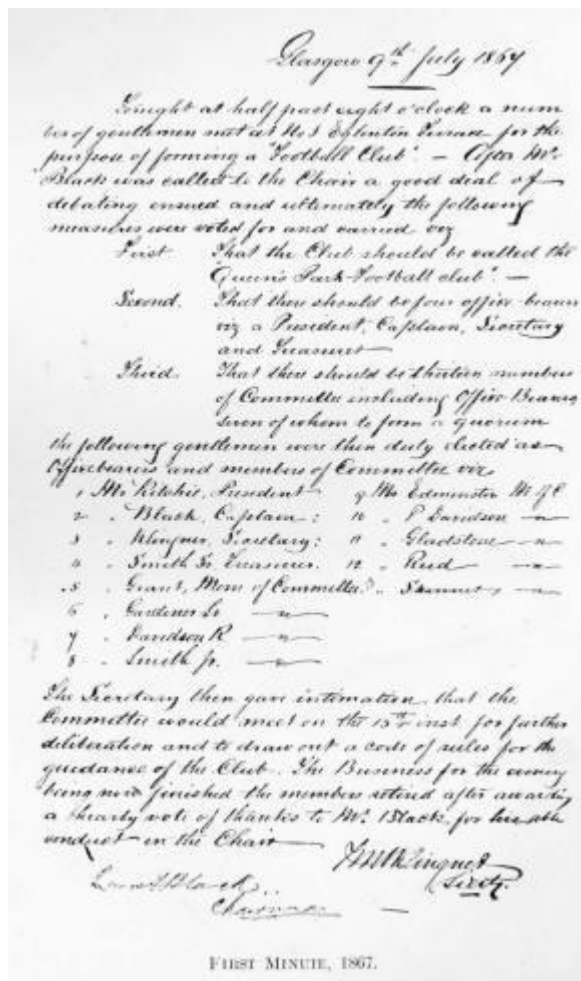 Glasgow 9th July 1867
Tonight at half past eight o'clock a num
ber of gentlemen met at No 3 Eglinton Terrace for the
purpose of forming a "Football Club". — After Mr.
Black was called to the Chair a good deal of
debating ensued and ultimately the following
measures were voted for and carried viz
First. That the Club should be called the
"Queen's Park Football club". —
Second. That there should be four office-bearers
viz a President, Captain, Secretary
and Treasurer
Third. That there should be thirteen members
of Committee including Office Bearers,
seven of whom to form a quorum
the following gentlemen were then duly elected as
Officebearers and members of Committee viz.
1 Mr Ritchie, President 9 Mr Edmiston M of C
2 " Black, Captain: 10 " P Davidson — " —
3 " Klinguer, Secretary: 11 " Gladstone — " —
4 " Smith Sr. Treasurer. 12 " Reid — " —
5 " Grant, Mem of Committee. " Skinner, — " —
6 " Gardiner Sr — " —
7 " Davidson R — " —
8 " Smith Jr. — " —
The Secretary then gave intimation that the
Committee would meet on the 15th inst for further
deliberation and to draw out a code of rules for the
guidance of the Club. The Business for the evening
being now finished the members retired after awarding
a hearty vote of thanks to Mr. Black, for his able
conduct in the Chair
Klinguer
Secty.
Black
Chairman —
FIRST MINUTE, 1867.